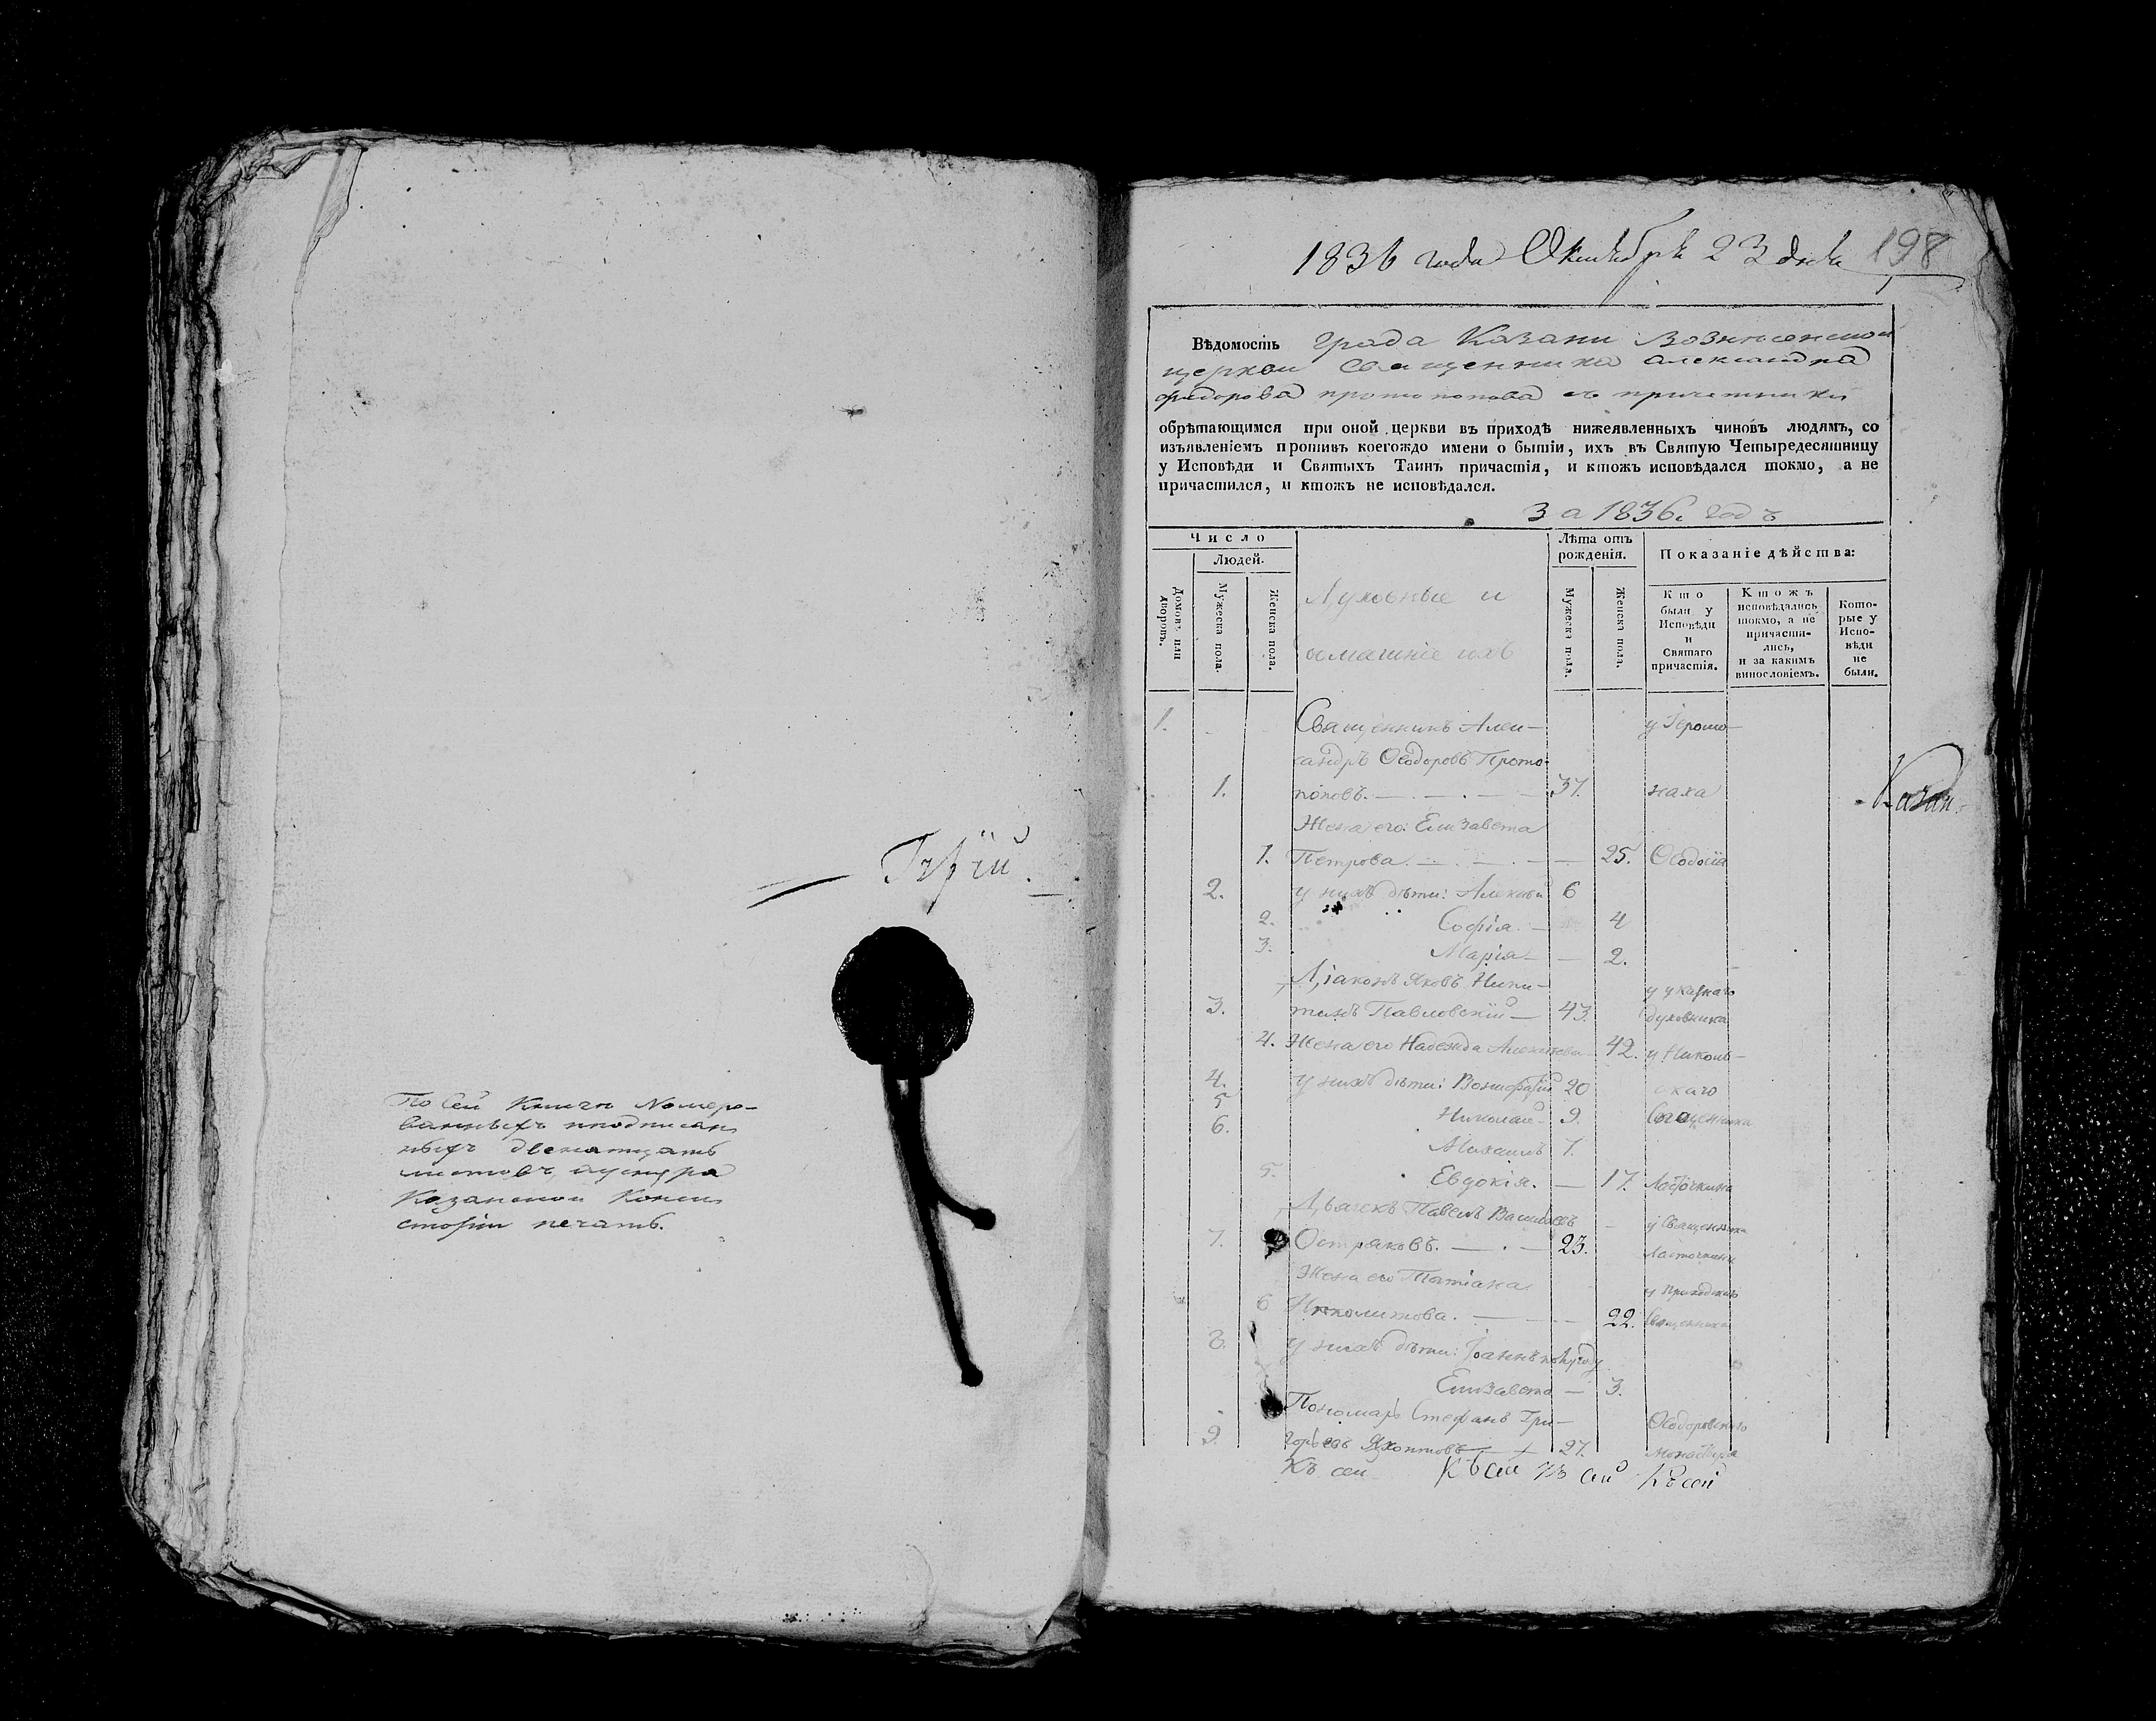 По сей книге Номеро-
ванныхъ и подписан
ныхъ двенатцать
листовъ, у шнура
Казанской Конси
сторіи печать.
1836 года Октября 23 дня 198
Вѣдомость Града Казани Вознесенской
церкви Священника Александра
Федорова Протопопова съ причетники
обрѣтающимся при оной церкви въ приходѣ нижеявленныхъ чиновъ людямъ, со
изъявленіемъ противъ коегождо имени о бытіи, ихъ въ Святую Четыредесятницу
у Исповѣди и Святыхъ Таинъ причастія, и ктожъ исповѣдался токмо, а не
причастился, и ктожъ не исповѣдался.
За 1836. годъ
Число
Людей.
Домовъ или дворовъ.
Мужеска пола.
Женска пола.
Духовные и
домашніе ихъ
Лѣта отъ рожденія.
Мужеска пола.
Женска пола.
Показаніе дѣйства:
Кто были у Исповѣди и Святаго причастія.
Ктожъ исповѣдались токмо, а не причасти-лись, и за какимъ винословіемъ.
Кото-рые у Испо-вѣди не были.
1. Священникъ Алек- у Іеромо-
сандръ Ѳеодоровъ Прото-
1. поповъ. 37. наха
Жена его: Елизавета
1. Петрова. 25. Ѳеодосія
2. у нихъ дѣти: Алексѣй 6
2. Софія. 4
3. Марія 2.
Діаконъ Яковъ Ники- у указнаго
3. тинъ Павловскій 43. духовника
4. Жена его Надежда 42. у Николь-
4. у нихъ дѣти: Вонифатій 20 скаго
5 Николай 9. Священника
6. Михаилъ 7.
5. Евдокія. 17. Ласточкина
Дьячекъ Павелъ Васильевъ у Священника
7. Остряковъ. 23. Ласточкина
Жена его Татіана у Приходскаго
6 Ипполитова. 22. Священника
8. у нихъ дѣти: Іоаннъ полугоду
Елизавета 3.
Пономарь Стефанъ Гри- Ѳеодоровскаго
9. горьевъ Яхонтовъ 27. Монастыря
Къ сей Къ сей Къ сей Къ сей
Казан-